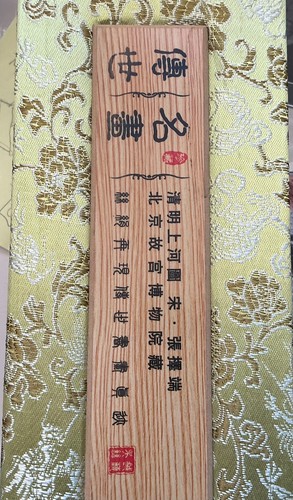 傳世名畫
清明上河圖 宋·張擇端
北京故宮博物院藏
絲綢再現傳世書畫